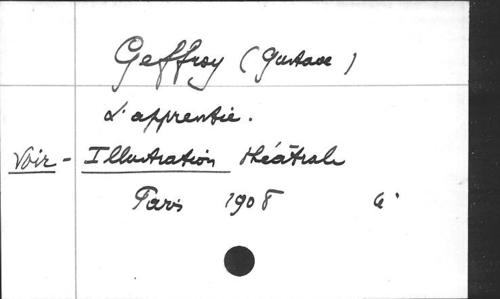 Geffroy (Gustave)
L'apprentie.
Voir - Illustration théâtrale
Paris 1908 4°